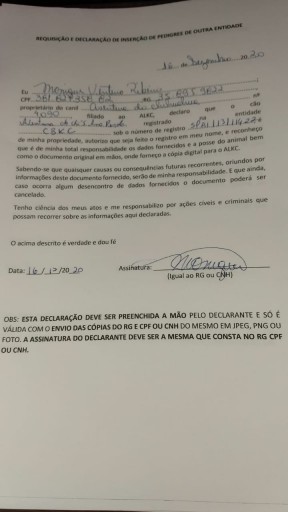 REQUISIÇÃO E DECLARAÇÃO DE INSERÇÃO DE PEDIGREE DE OUTRA ENTIDADE
16 de Dezembro de 20 20
Eu Monique
CPF RG nº
proprietário do canil
filiado ao ALKC, declaro que o cão
registrado na entidade
CBKC sob o número de registro
de minha propriedade, autorizo que seja feito o registro em meu nome, e reconheço
que é de minha total responsabilidade os dados fornecidos e a posse do animal bem
como o documento original em mãos, onde forneço a cópia digital para o ALKC.
Sabendo se que quaisquer causas ou consequências futuras recorrentes, oriundos por
informações deste documento fornecido, serão de minha responsabilidade. E que ainda,
caso ocorra algum desencontro de dados fornecidos o documento poderá ser
cancelado.
Tenho ciência dos meus atos e me responsabilizo por ações cíveis e criminais que
possam recorrer sobre as informações aqui declaradas.
O acima descrito é verdade e dou fé
Data: 16/12/20 20 Assinatura: Monique
(Igual ao RG ou CNH)
OBS: ESTA DECLARAÇÃO DEVE SER PREENCHIDA A MÃO PELO DECLARANTE E SÓ É
VÁLIDA COM O ENVIO DAS CÓPIAS DO RG E CPF OU CNH DO MESMO EM JPEG, PNG OU
FOTO. A ASSINATURA DO DECLARANTE DEVE SER A MESMA QUE CONSTA NO RG CPF
OU CNH.